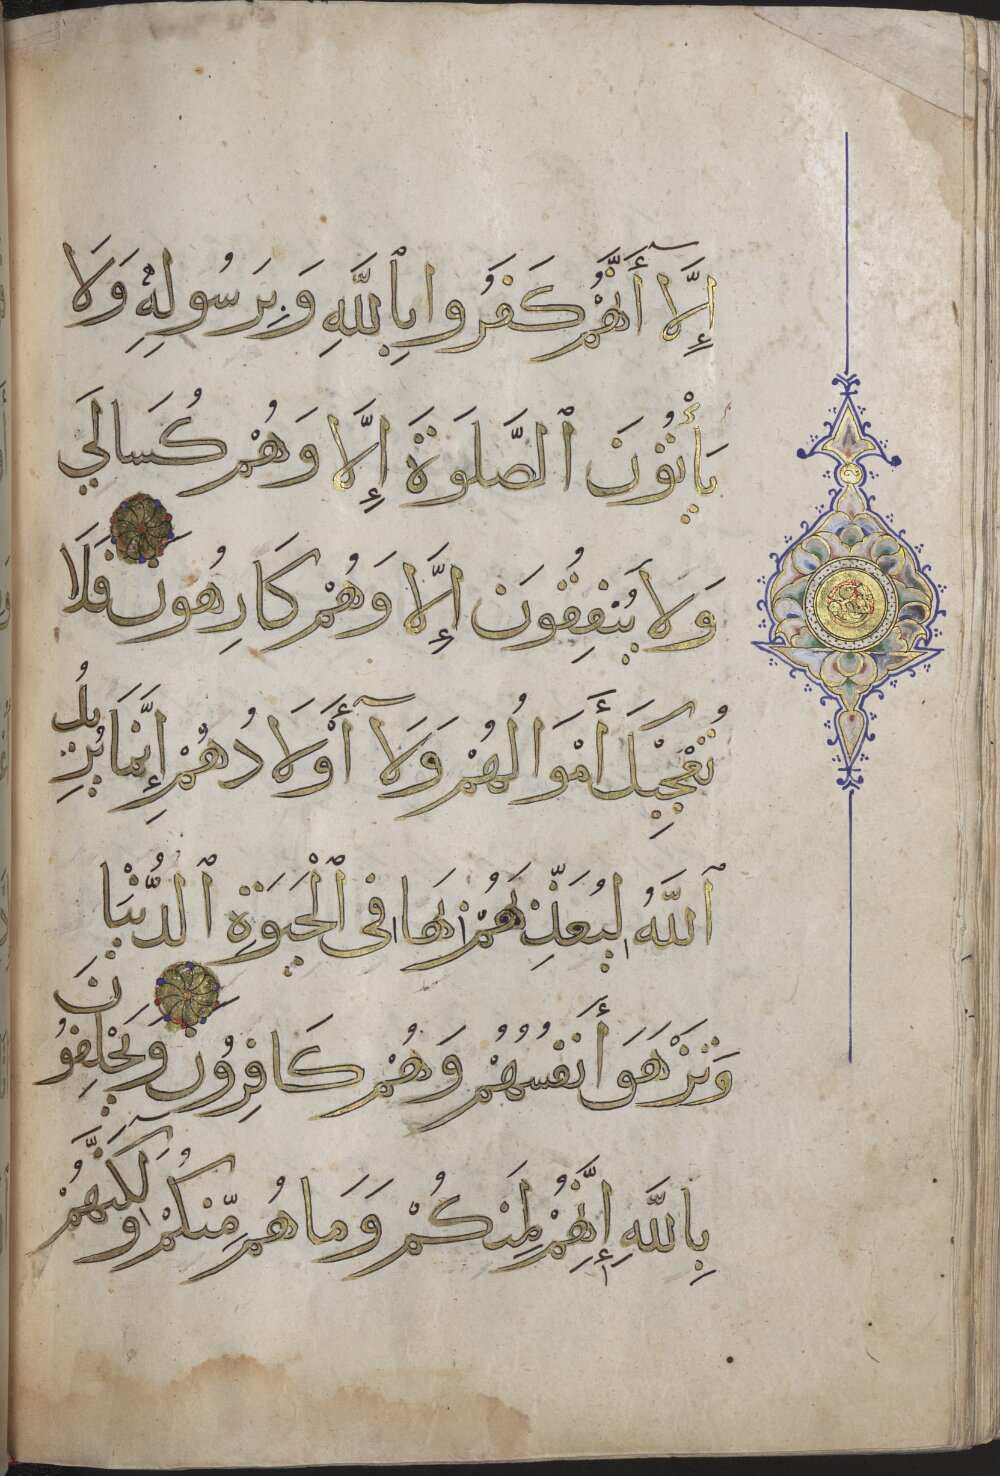 إِلَّآ أَنَّهُمْ كَفَرُوا بِٱللَّهِ وَبِرَسُولِهِ وَلَا
يَأْتُونَ ٱلصَّلَوةَ إِلَّا وَهُمْ كُسَالَي
وَلَا يُنفِقُونَ إِلَّا وَهُمْ كَارِهُونَ فَلَا
تُعْجِبْكَ أَمْوَالُهُمْ وَلَآ أَوْلَادُهُمْ إِنَّمَا يُرِيدُ
ٱللَّهُ لِيُعَذِّبَهُمْ بِهَا فِى ٱلْحَيَوةِ ٱلدُّنْيَا
وَتَزْهَقَ أَنفُسُهُمْ وَهُمْ كَافِرُونَ وَيَحْلِفُونَ
بِاللَّهِ إِنَّهُمْ لَمِنكُمْ وَمَا هُم مِّنكُمْ وَلَكِنَّهُمْ